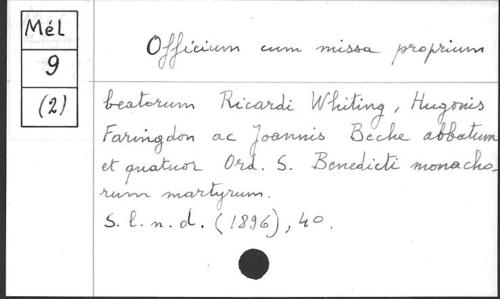 Mél
9
(2)
Officium cum missa proprium
beatorum Ricardi Whiting, Hugonis
Faringdon ac Joannis Beche abbatum
et quatuor Ord. S. Benedicti monacho-
rum martyrum.
S. l. n. d. (1896), 4o.